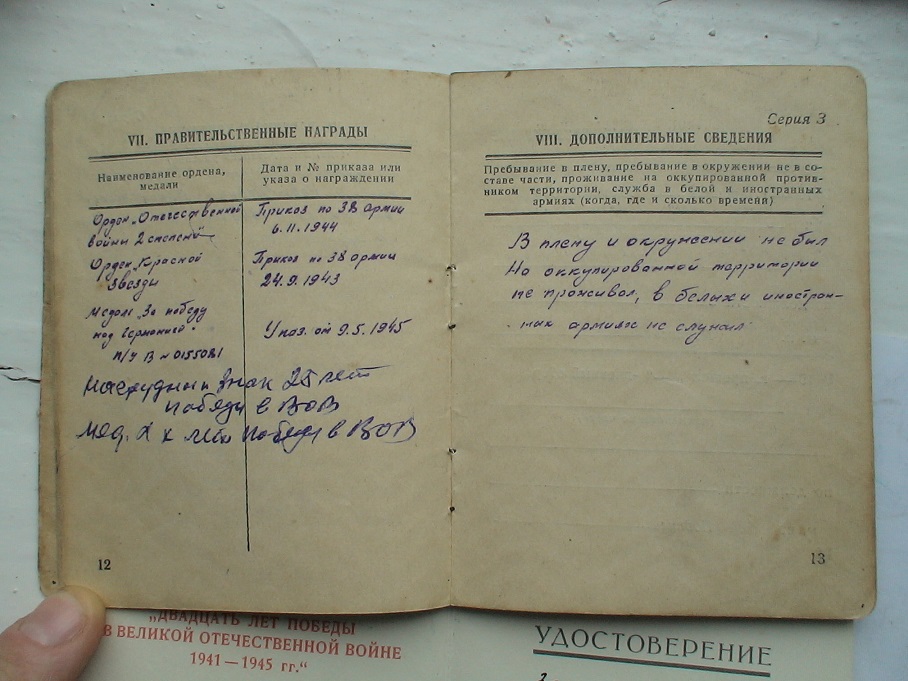 VII. ПРАВИТЕЛЬСТВЕННЫЕ НАГРАДЫ
Наименование ордена,
медали
Дата и № приказа или
указа о награждении
Орден „Отечественной
войны 2 степени"
Приказ по 38 армии
6.11.1944
Орден „Красной
Звезды
Приказ по 38 армии
24.9.1943
Медаль „За победу
над Германией"
П/у В № 0155081
Указ. от 9.5.1945
Нагрудный знак 25 лет
победы в ВОВ
Мед. XX лет победы в ВОВ
12
Серия 3
VIII. ДОПОЛНИТЕЛЬНЫЕ СВЕДЕНИЯ
Пребывание в плену, пребывание в окружении не в со-
ставе части, проживание на оккупированной против-
ником территории, служба в белой и иностранных
армиях (когда, где и сколько времени)
В плену и окружении не был
На оккупированной территории
не проживал, в белых и иностран-
ных армиях не служил
13
„ДВАДЦАТЬ ЛЕТ ПОБЕДЫ
В ВЕЛИКОЙ ОТЕЧЕСТВЕННОЙ ВОЙНЕ
1941—1945 гг."
УДОСТОВЕРЕНИЕ